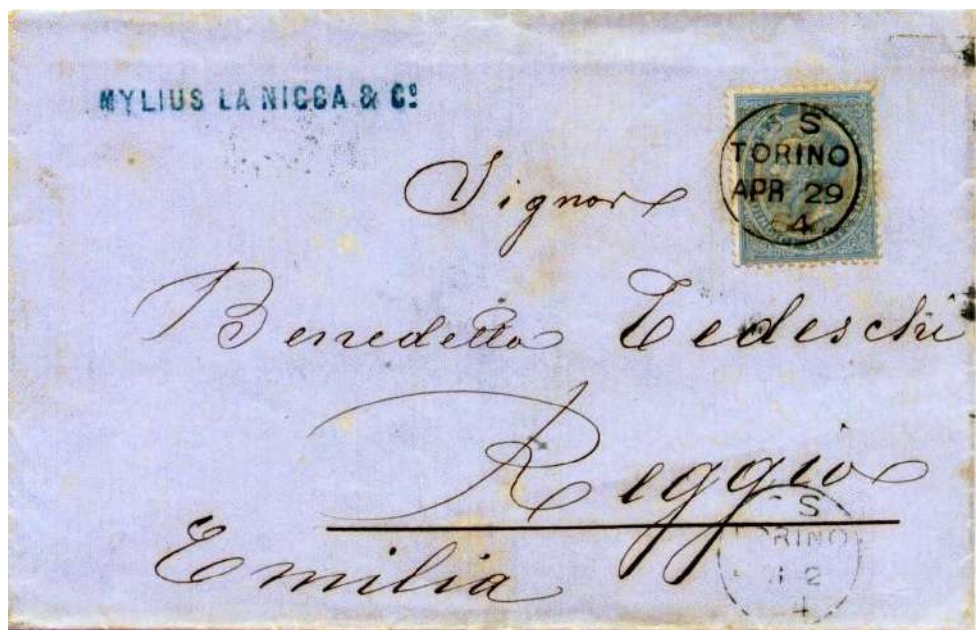 MYLIUS LA NICCA & Cº
S
TORINO
APR 29
Signor
Benedetto Tedeschi
Reggio
Emilia
S
TORINO